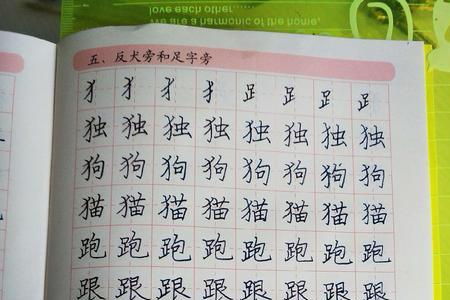 love each other......
We are a harmonic of the home,
五、反犬旁和足字旁
犭犭犭犭𧾷𧾷𧾷𧾷
独独独独独独独独
狗狗狗狗狗狗狗狗
猫猫猫猫猫猫猫猫
跑跑跑跑跑跑跑跑
跟跟跟跟跟跟跟跟